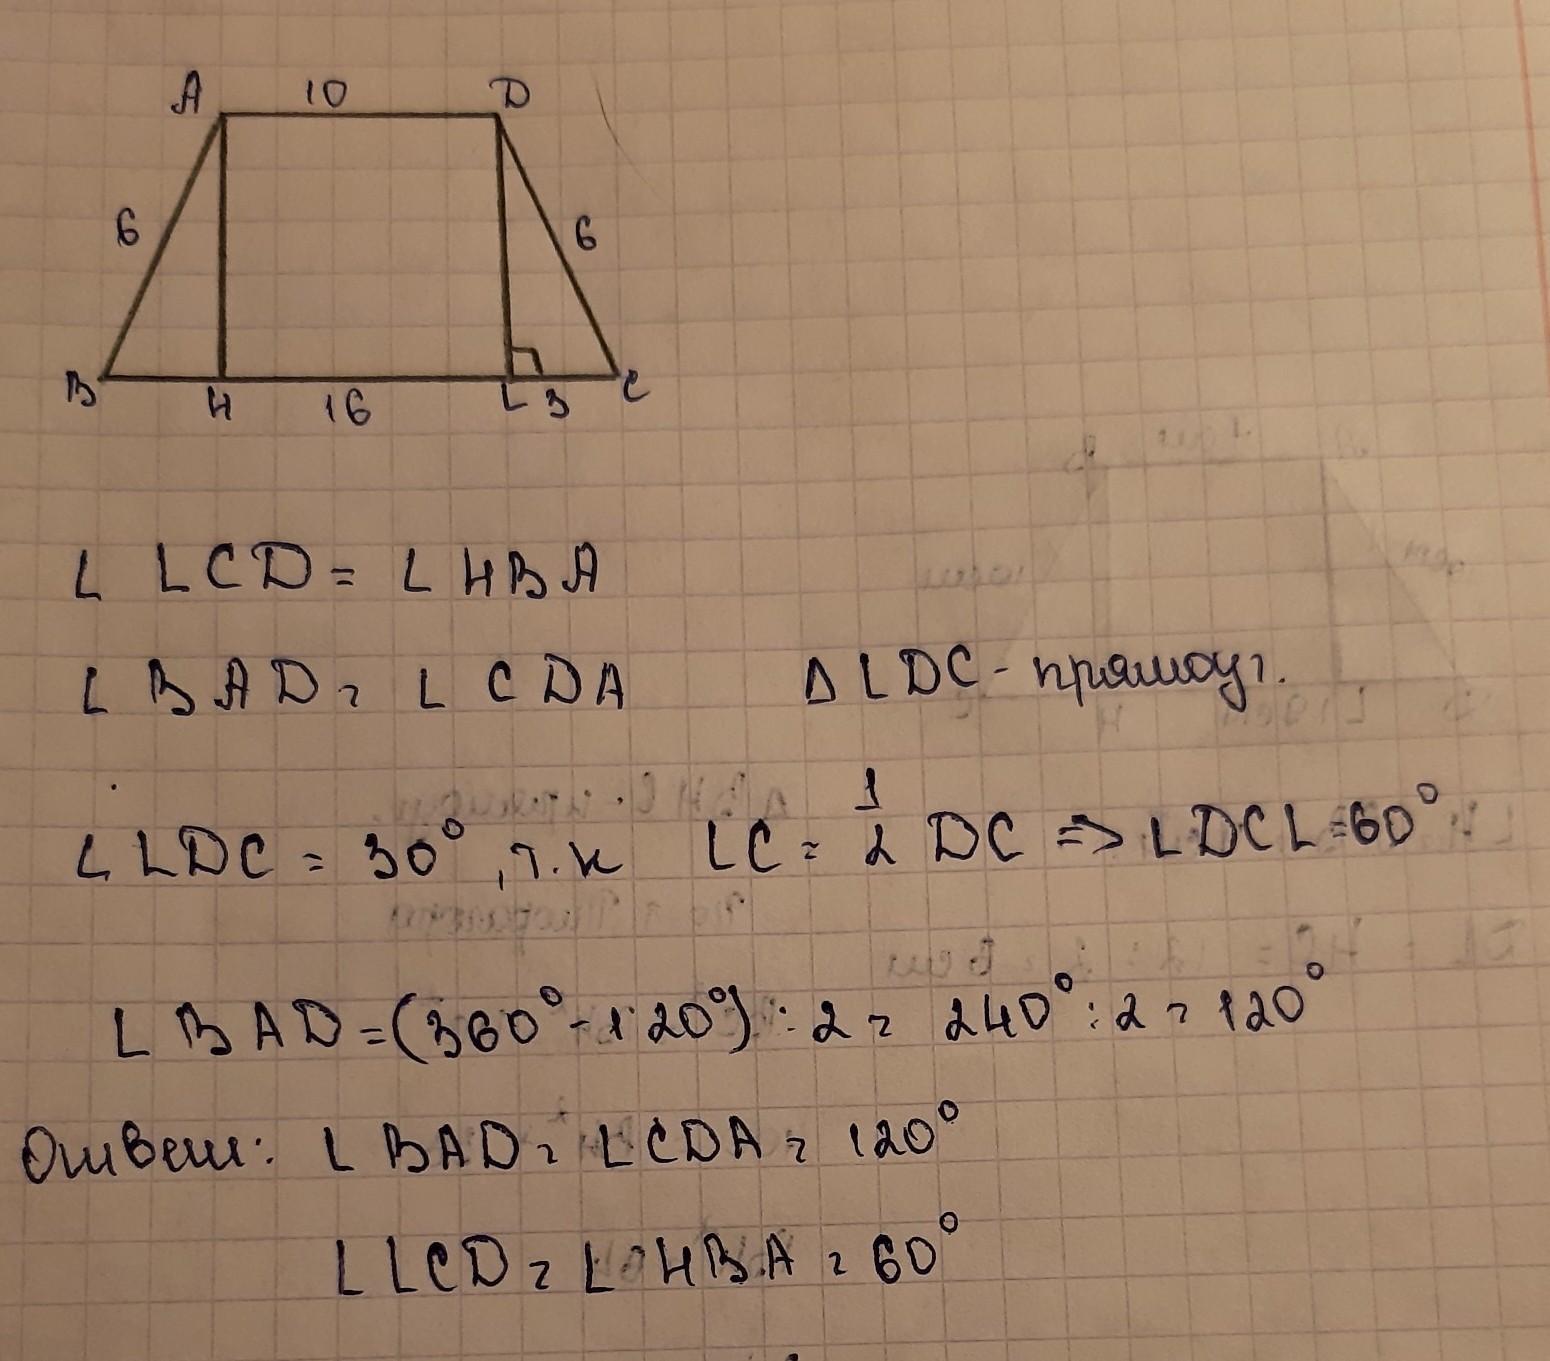 A 10 D
6 6
B H 16 L 3 C
∠ LCD = ∠ HBA
∠ BAD = ∠ CDA Δ LDC - прямоуг.
∠ LDC = 30° , т.к LC = 1/2 DC => ∠DCL = 60°
∠ BAD = (360° - 120°) : 2 = 240° : 2 = 120°
Ответ: ∠ BAD = ∠CDA = 120°
∠ LCD = ∠ HBA = 60°